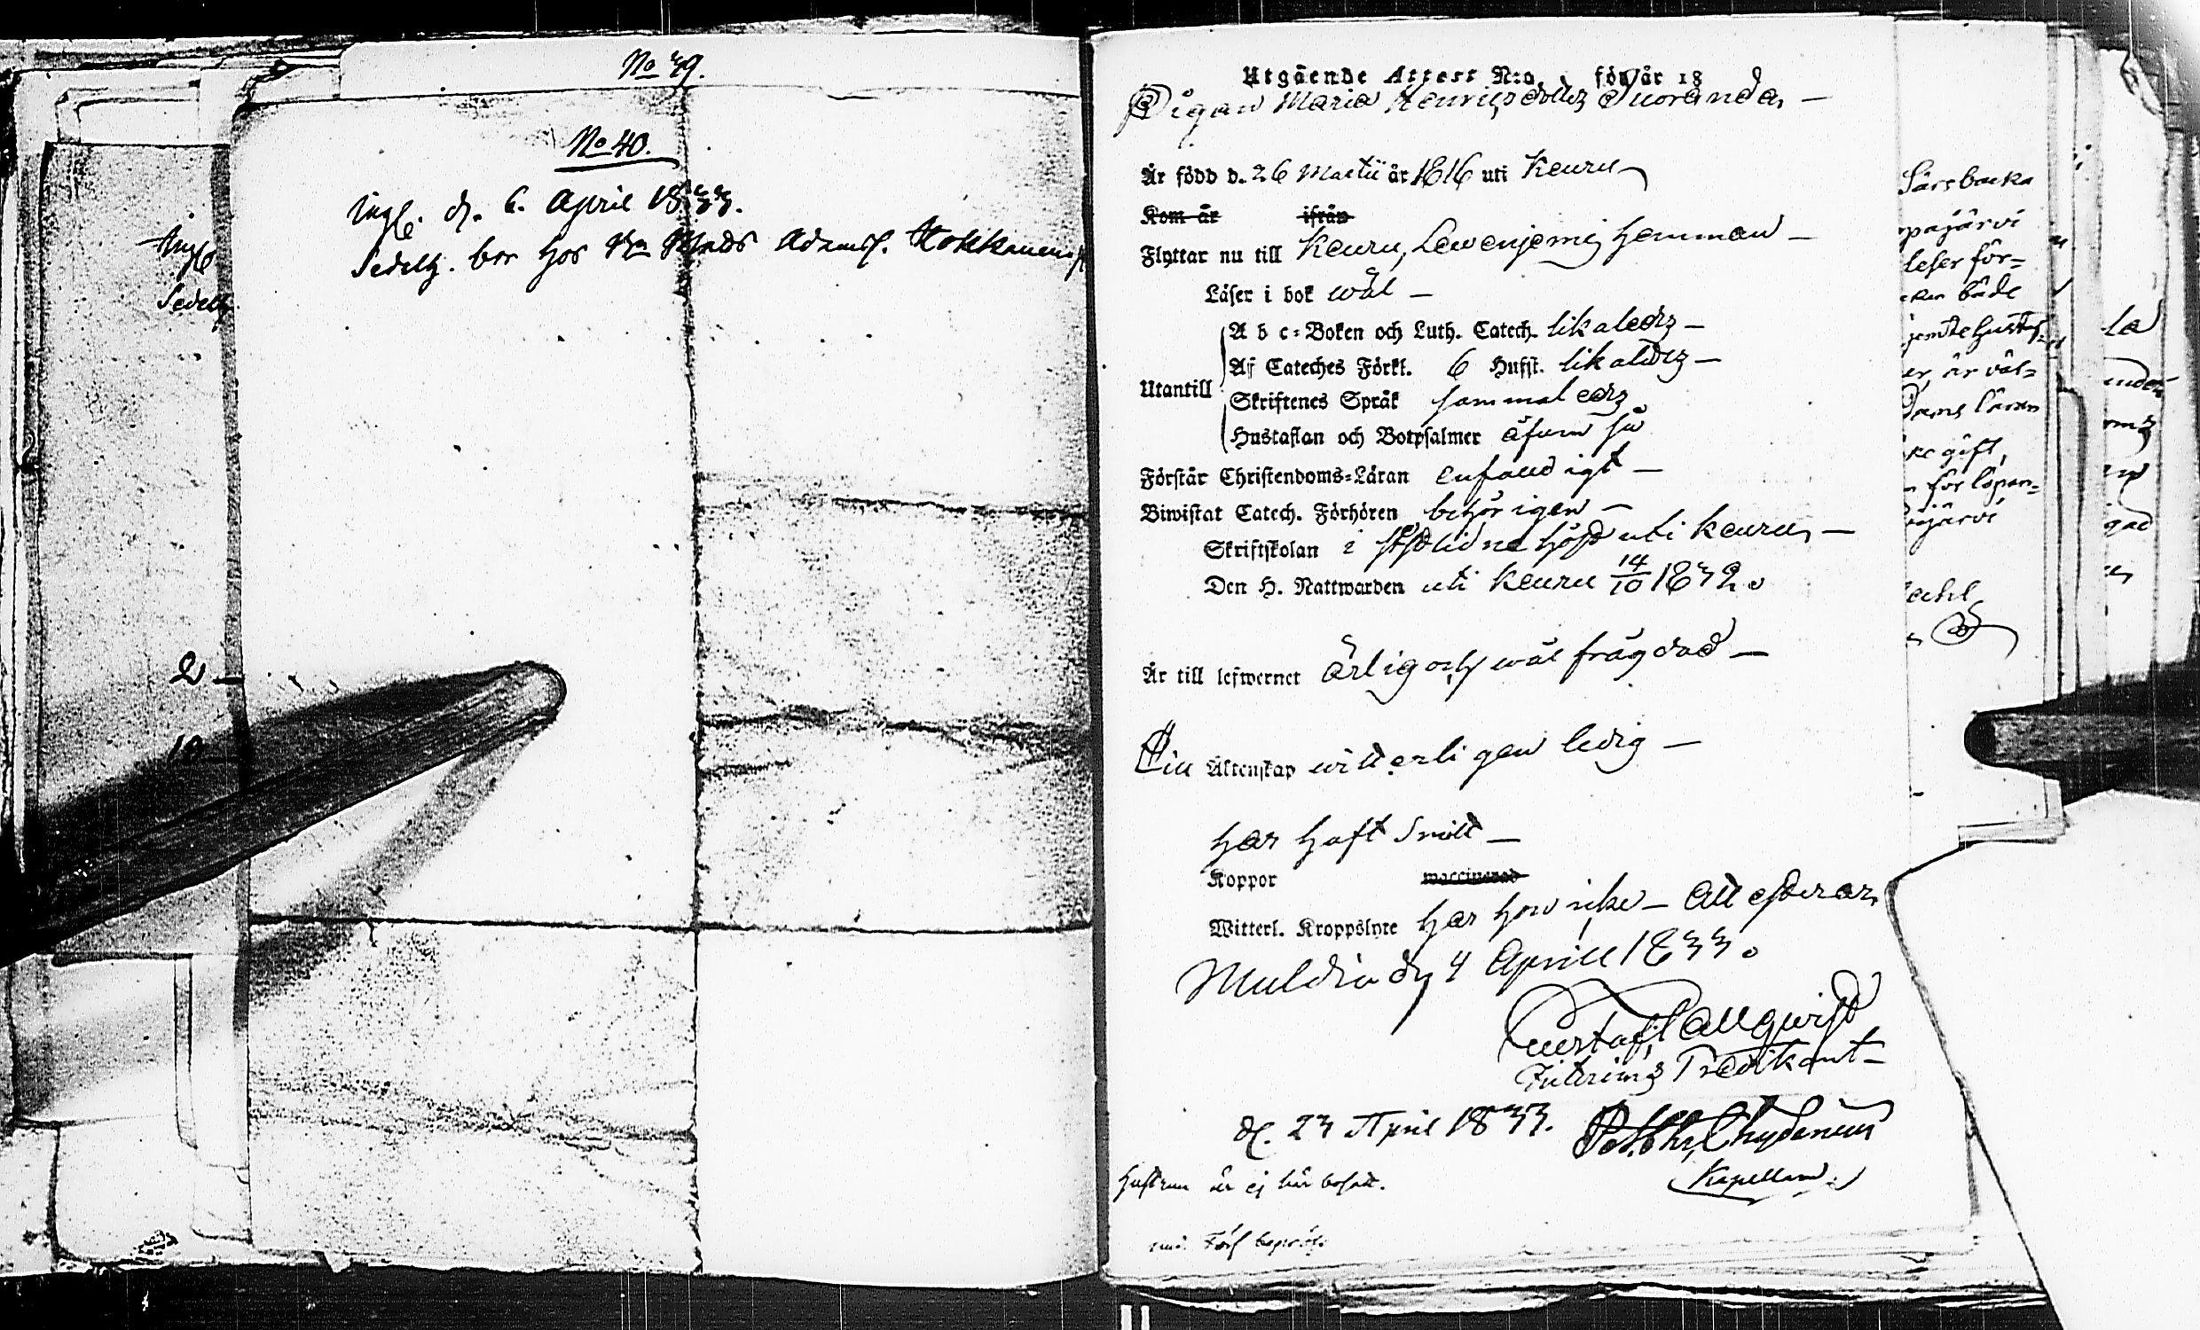 No 49.
No 40.
ingl. d. 6. April 1833.
Sedelh. bor hos Mads Adamss. Kokkanen
Ingl
Sedelh
2
10
Utgående Attest N:o för år 18
Pigan Maria Henricsdotter Suoranda
Är född d. 26 Martii år 1816 uti Keuru
Kom är ifrån
Flyttar nu till Keuru, Lewenjemi hemman
Läser i bok wäl
A b c-Boken och Luth. Catech. likaledes
Af Cateches Förkl. 6 Hufst. likaledes
Utantill
Skriftenes Språk sammaledes
Hustaflan och Botpsalmer äfwen så
Förstår Christendoms-Läran enfaldigt
Biwistat Catech. Förhören behörigen
Skriftskolan i sistlidne höst uti Keuru
Den H. Nattwarden uti Keuru 14/10 1832.
Är till lefwernet ärlig och wäl frägdad
Till Äktenskap witterligen ledig
har haft
Koppor waccinerad
Witterl. Kroppslyte har hon icke Attesterar
Muldia d. 4 Aprill 1833.
Gustaf Tallqwist
Predikant
d. 23 April 1833. Chydenius
Kapellan
Hustrun är ej här
Särsbacka
pajärvi
leser för=
både
är väl=
gift,
för löpan=
järvi